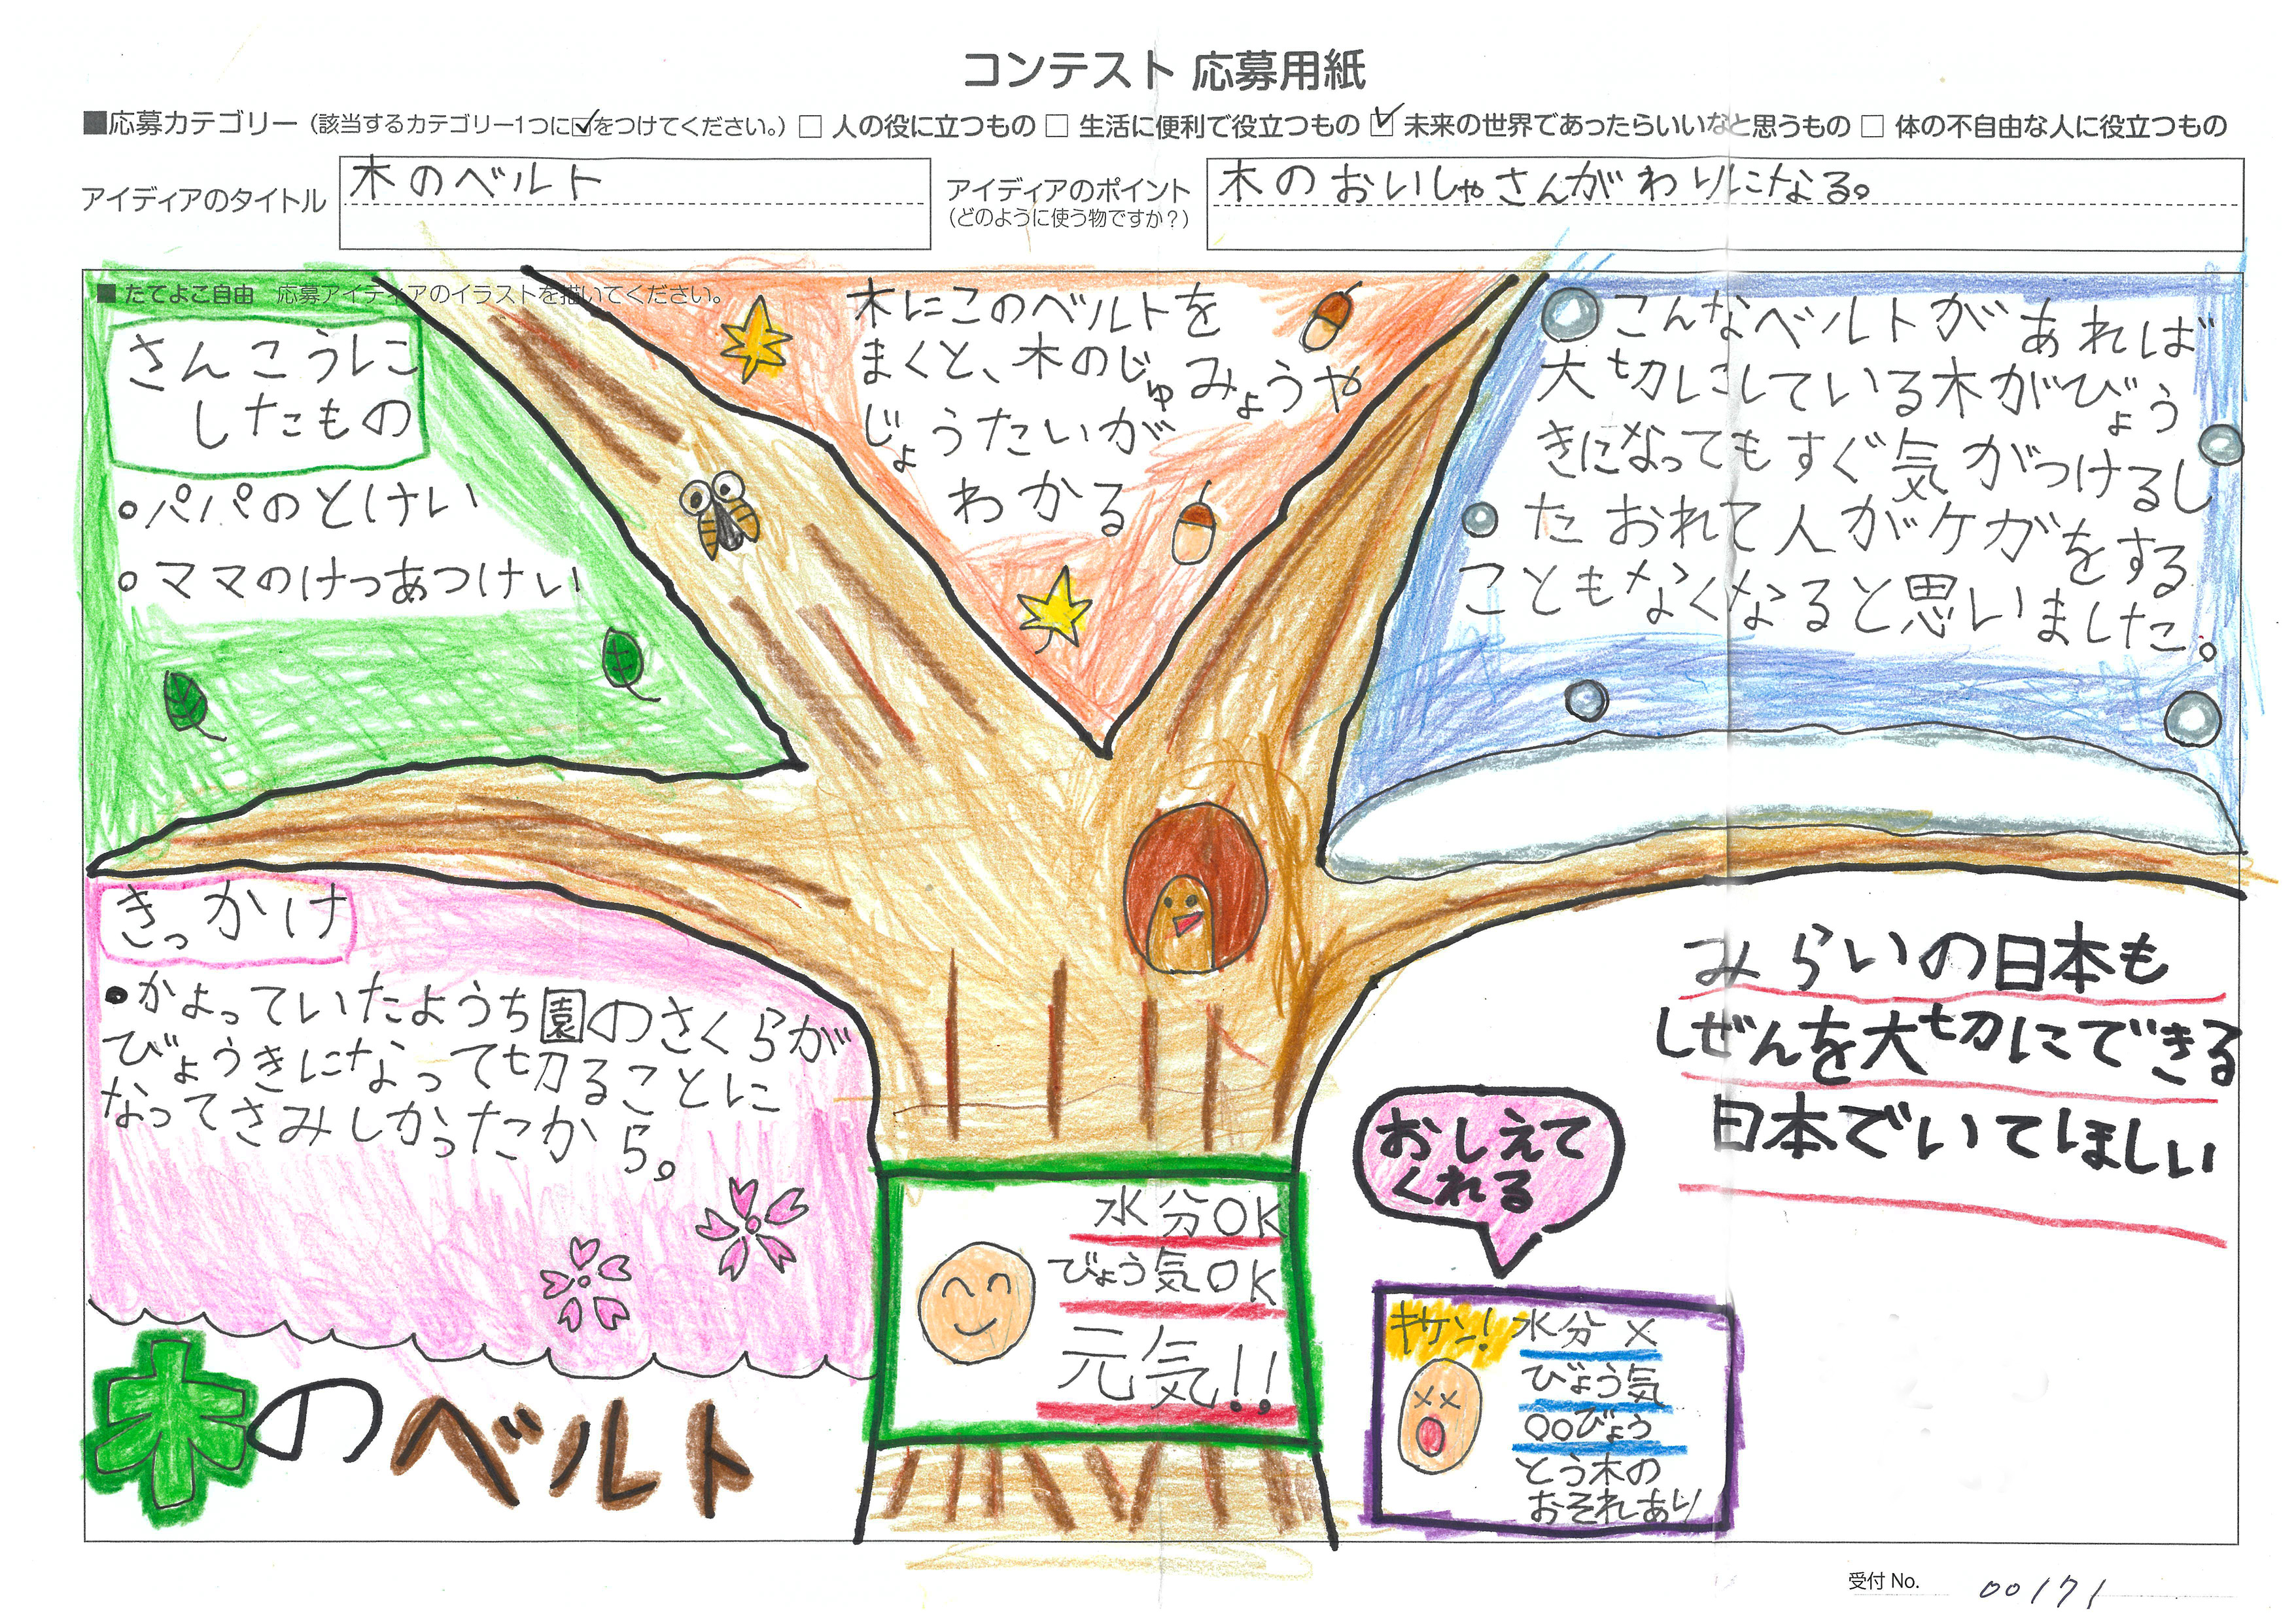 コンテスト 応募用紙
■応募カテゴリー（該当するカテゴリー1つに☑をつけてください。）□ 人の役に立つもの □ 生活に便利で役立つもの ☑ 未来の世界であったらいいなと思うもの □ 体の不自由な人に役立つもの
アイディアのタイトル
木のベルト
アイディアのポイント
（どのように使う物ですか？）
木のおいしゃさんがわりになる。
■ たてよこ自由　応募アイディアのイラストを描いてください。
さんこうに
したもの
・パパのとけい
・ママのけつあつけい
木にこのベルトを
まくと、木のじゅみょうや
じょうたいが
わかる
こんなベルトがあれば
大切にしている木がびょう
きになってもすぐ気がつけるし
たおれて人がケガをする
こともなくなると思いました。
きっかけ
・かよっていたようち園のさくらが
びょうきになって切ることに
なってさみしかったから。
みらいの日本も
しぜんを大切にできる
日本でいてほしい
おしえて
くれる
水分OK
びょう気OK
元気!!
キケン!
水分×
びょう気
○○びょう
とう木の
おそれあり
木のベルト
受付 No. 00171